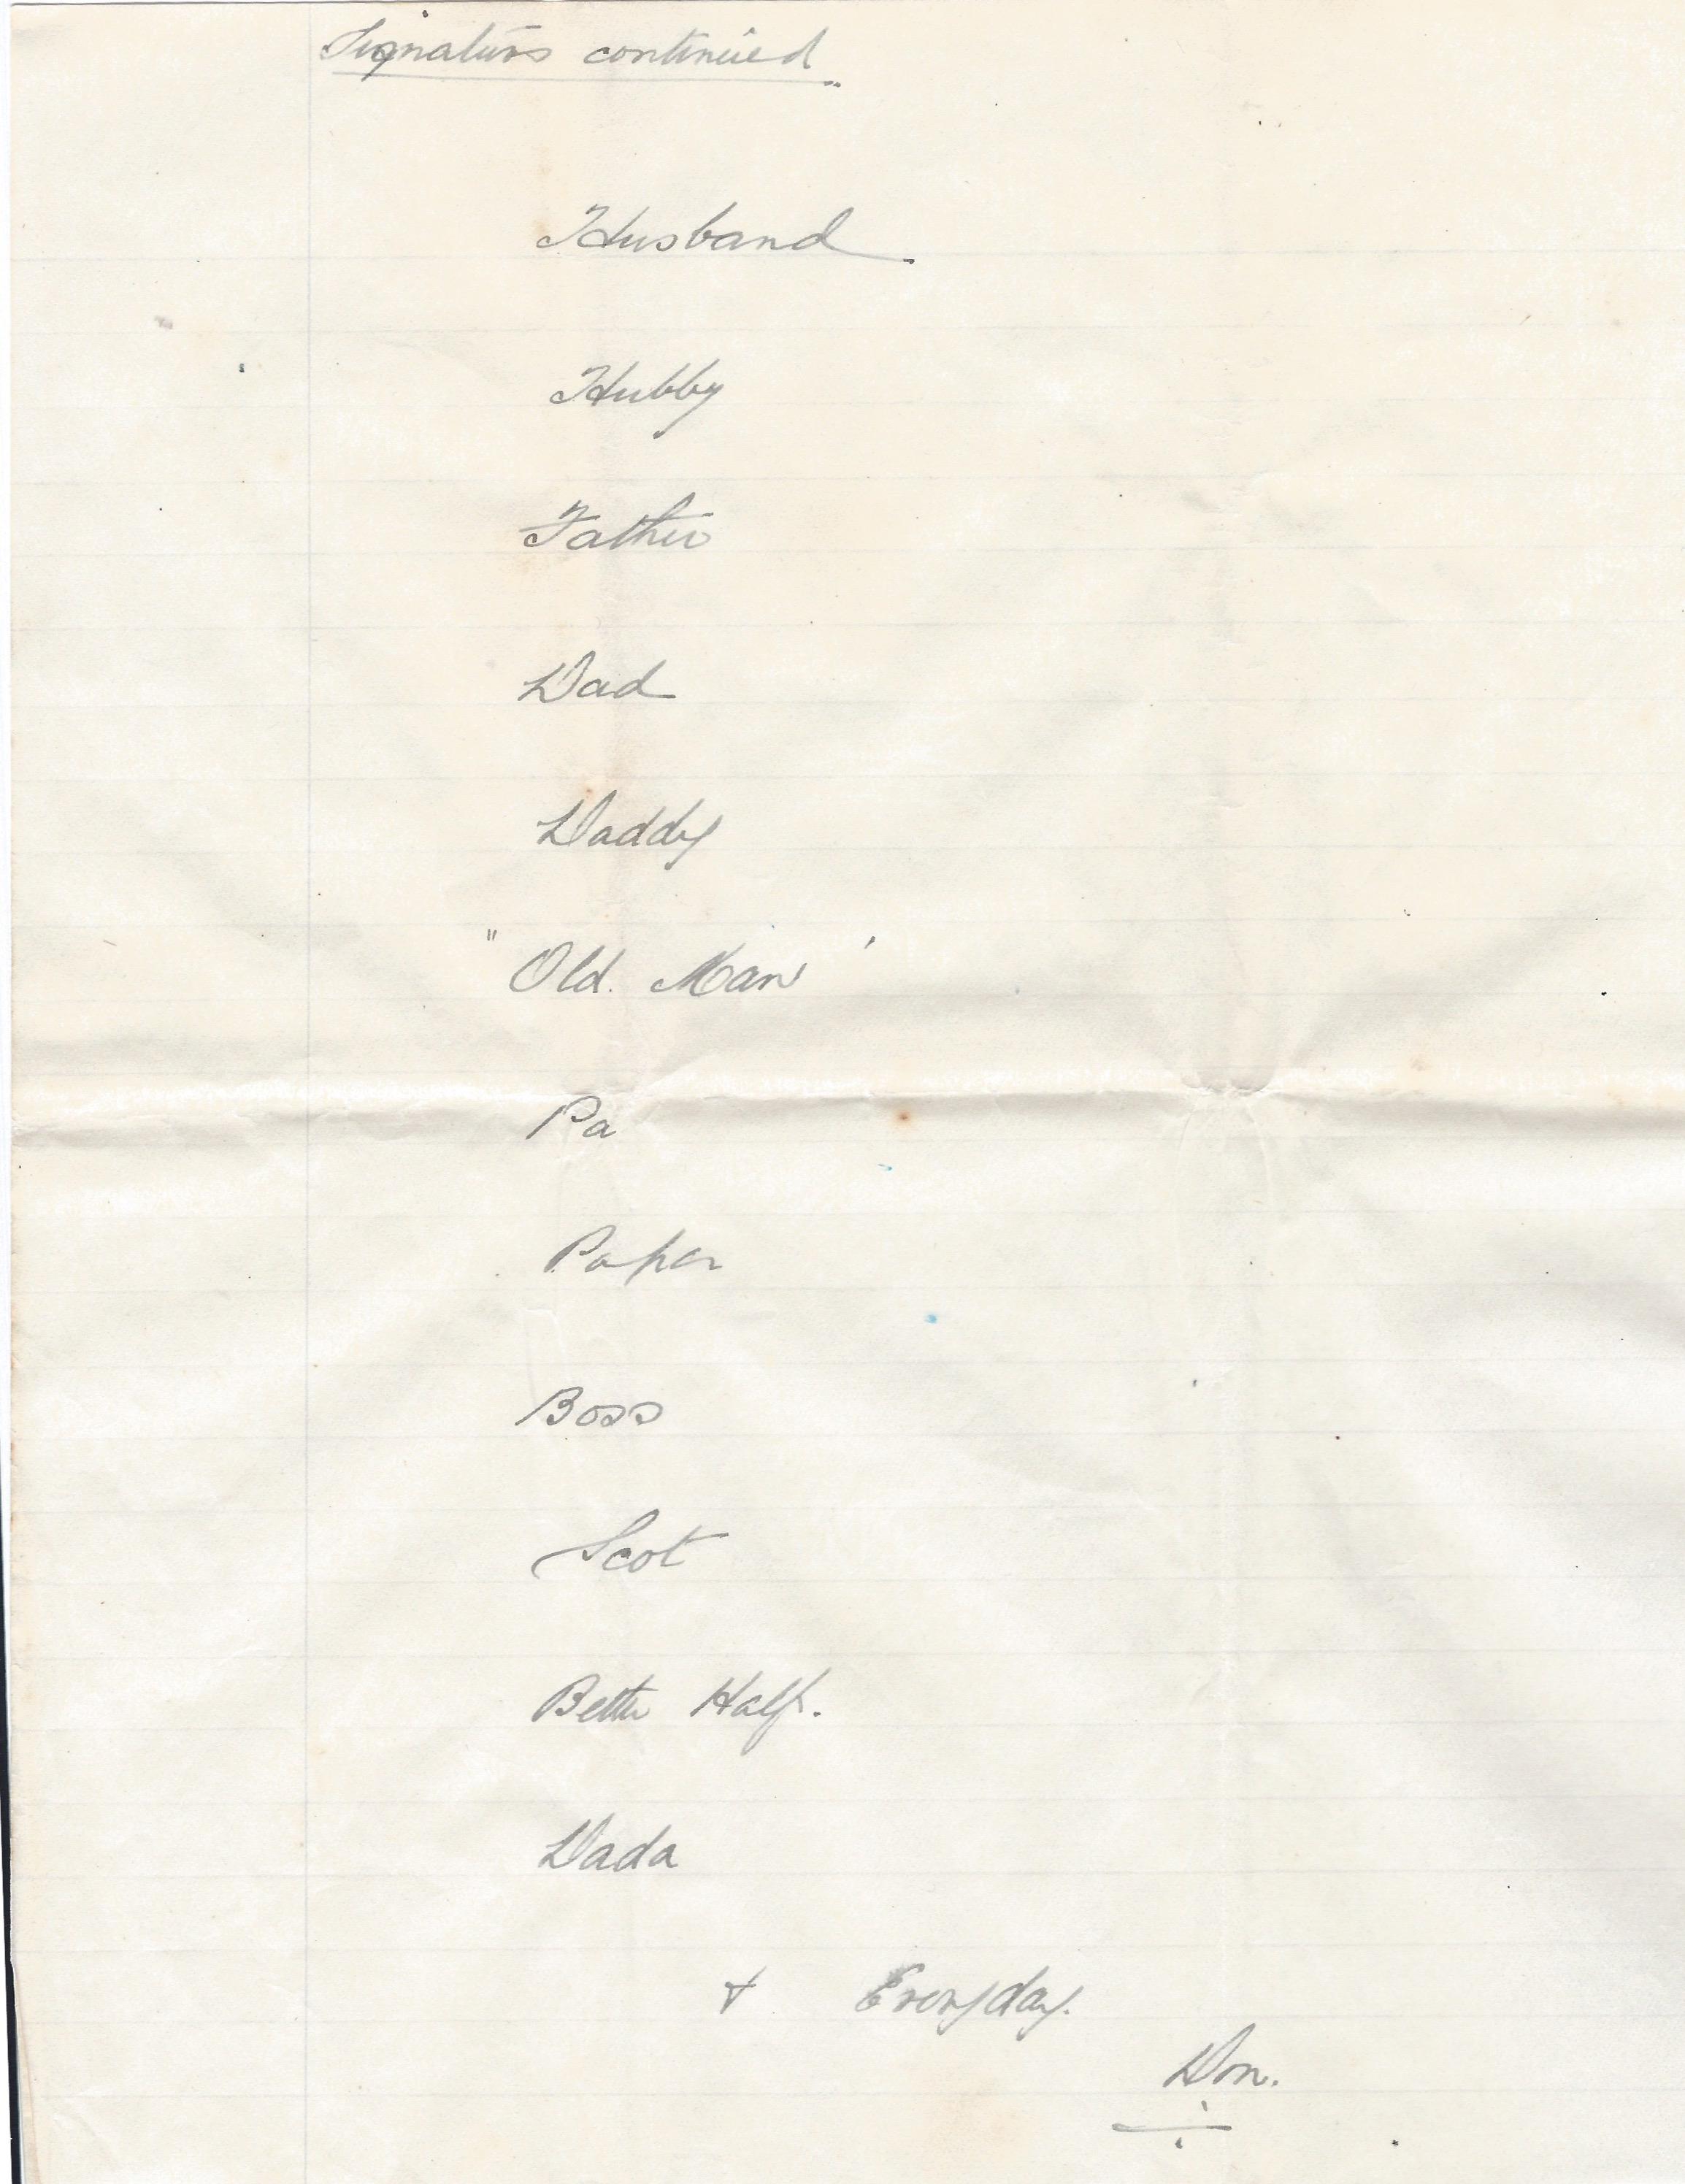 Signatures continued.
Husband.
Hubby
Father
Dad
Daddy
"Old. Man'
Pa
Paper
Boss
Scot
Better Half.
Dada
+ Everyday.
Don.